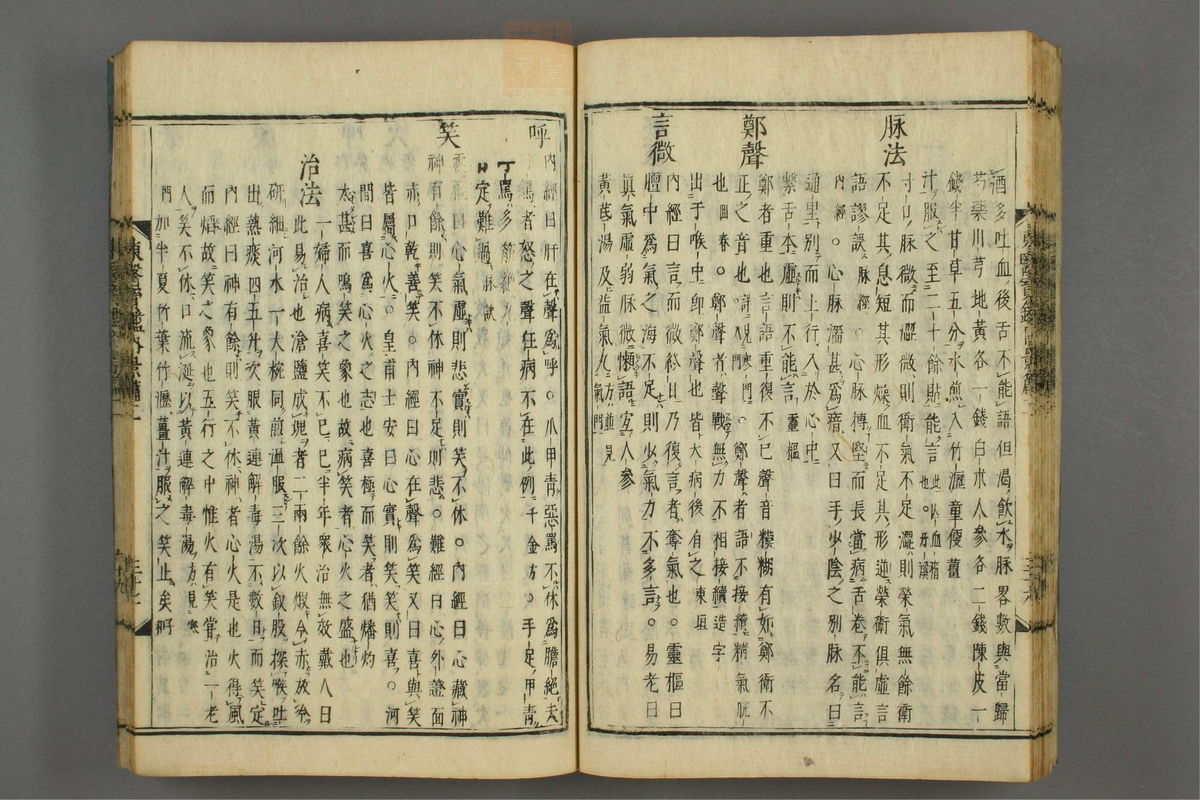 酒多吐血後舌不能語但渴飲水脉畧數與當歸
芍藥川芎地黃各一錢白朮人參各二錢陳皮一
錢半甘草五分水煎入竹瀝童便薑
汁服之至二十餘貼能言
脉法
寸口脉微而澀微則衛氣不足澀則榮氣無餘衛
不足其息短其形燥血不足其形逆榮衛俱虛言
語謬誤脉經○心脉搏堅而長當病舌卷不能言
內經○心脉濇甚爲瘖又曰手少陰之別脉名曰
通里別而上行入於心中
繫舌本虛則不能言靈樞
鄭聲
鄭者重也言語重復不已聲音模糊有如鄭衛不
正之音也詳見寒門○鄭聲者語不接續精氣脱
也回春○鄭聲者聲戰無力不相接續造字
出于喉中卽鄭聲也皆大病後有之東垣
言微
內經曰言而微終日乃復言者奪氣也○靈樞曰
膻中爲氣之海不足則少氣力不多言○易老曰
眞氣虛弱脉微懶語宜人參
黃芪湯及益氣丸方並見氣門
呼
內經曰肝在聲爲呼○爪甲青惡罵不休爲膽絕夫
罵者怒之聲狂病不在此例千金方○手足甲青
呼罵多筋絕
定難過脉訣
笑
靈樞曰心氣虛則悲實則笑不休○內經曰心藏神
神有餘則笑不休神不足則悲○難經曰心外證面
赤口乾善笑○內經曰心在聲爲笑又曰喜與笑
皆屬心火○皇甫士安曰心實則笑笑則喜○河
間曰喜爲心火之志也喜極而笑者猶燔灼
太甚而鳴笑之象也故病笑者心火之盛也
治法
一婦人病喜笑不已已半年衆治無效戴人曰
此易治也滄鹽成塊者二兩餘火煆令赤放冷
研細河水一大椀同煎溫服三次以釵股探喉吐
出熱痰四五升次服黃連解毒湯不數日而笑定
內經曰神有餘則笑不休神者心火是也火得風
而焰故笑之象也五行之中惟火有笑嘗治一老
人笑不休口流涎以黃連解毒湯方見寒
門加半夏竹葉竹瀝薑汁服之笑止矣